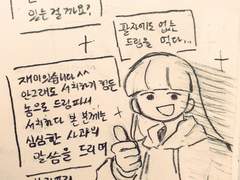 있는걸까요?
팔자에도 없는
드림을 먹다...
재미있습니다^^
안그래도 서치하기 힘든
농으로 드림파서
서치하다 본 분께는
심심한 사과의
말씀을 드리며